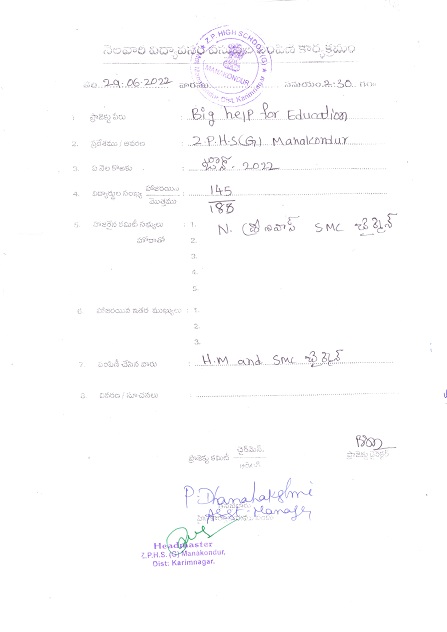 Z.P. HIGH SCHOOL (G)
MANAKONDUR
Dist. Karimnagar
నెలవారి విద్యార్థులకు కార్యక్రమం
29-06-2022 సమయం 2-30
1. ప్రాజెక్టు పేరు : Big help for Education
2. ప్రదేశము / వివరం : Z P.H.S(G) Manakondur
3. ఏ నెల కొరకు : జూన్. 2022
4. విద్యార్థుల సంఖ్య హాజరయిన 145
మొత్తము 188
5. హాజరైన కమిటీ సభ్యులు : 1. N. శ్రీనివాస్ SMC చైర్మన్
హోదాతో 2.
3.
4.
5.
6. హాజరయిన ఇతర ముఖ్యులు : 1.
2.
3.
7. పంపిణీ చేసిన వారు : H.M and SMC చైర్మన్
8. వివరణ / సూచనలు :
ప్రాజెక్టు కమిటీ చైర్మన్
ప్రాజెక్టు డైరెక్టర్
P. Dhanalakshmi
Asst. Manager
Headmaster
Z.P.H.S. (G) Manakondur,
Dist: Karimnagar.